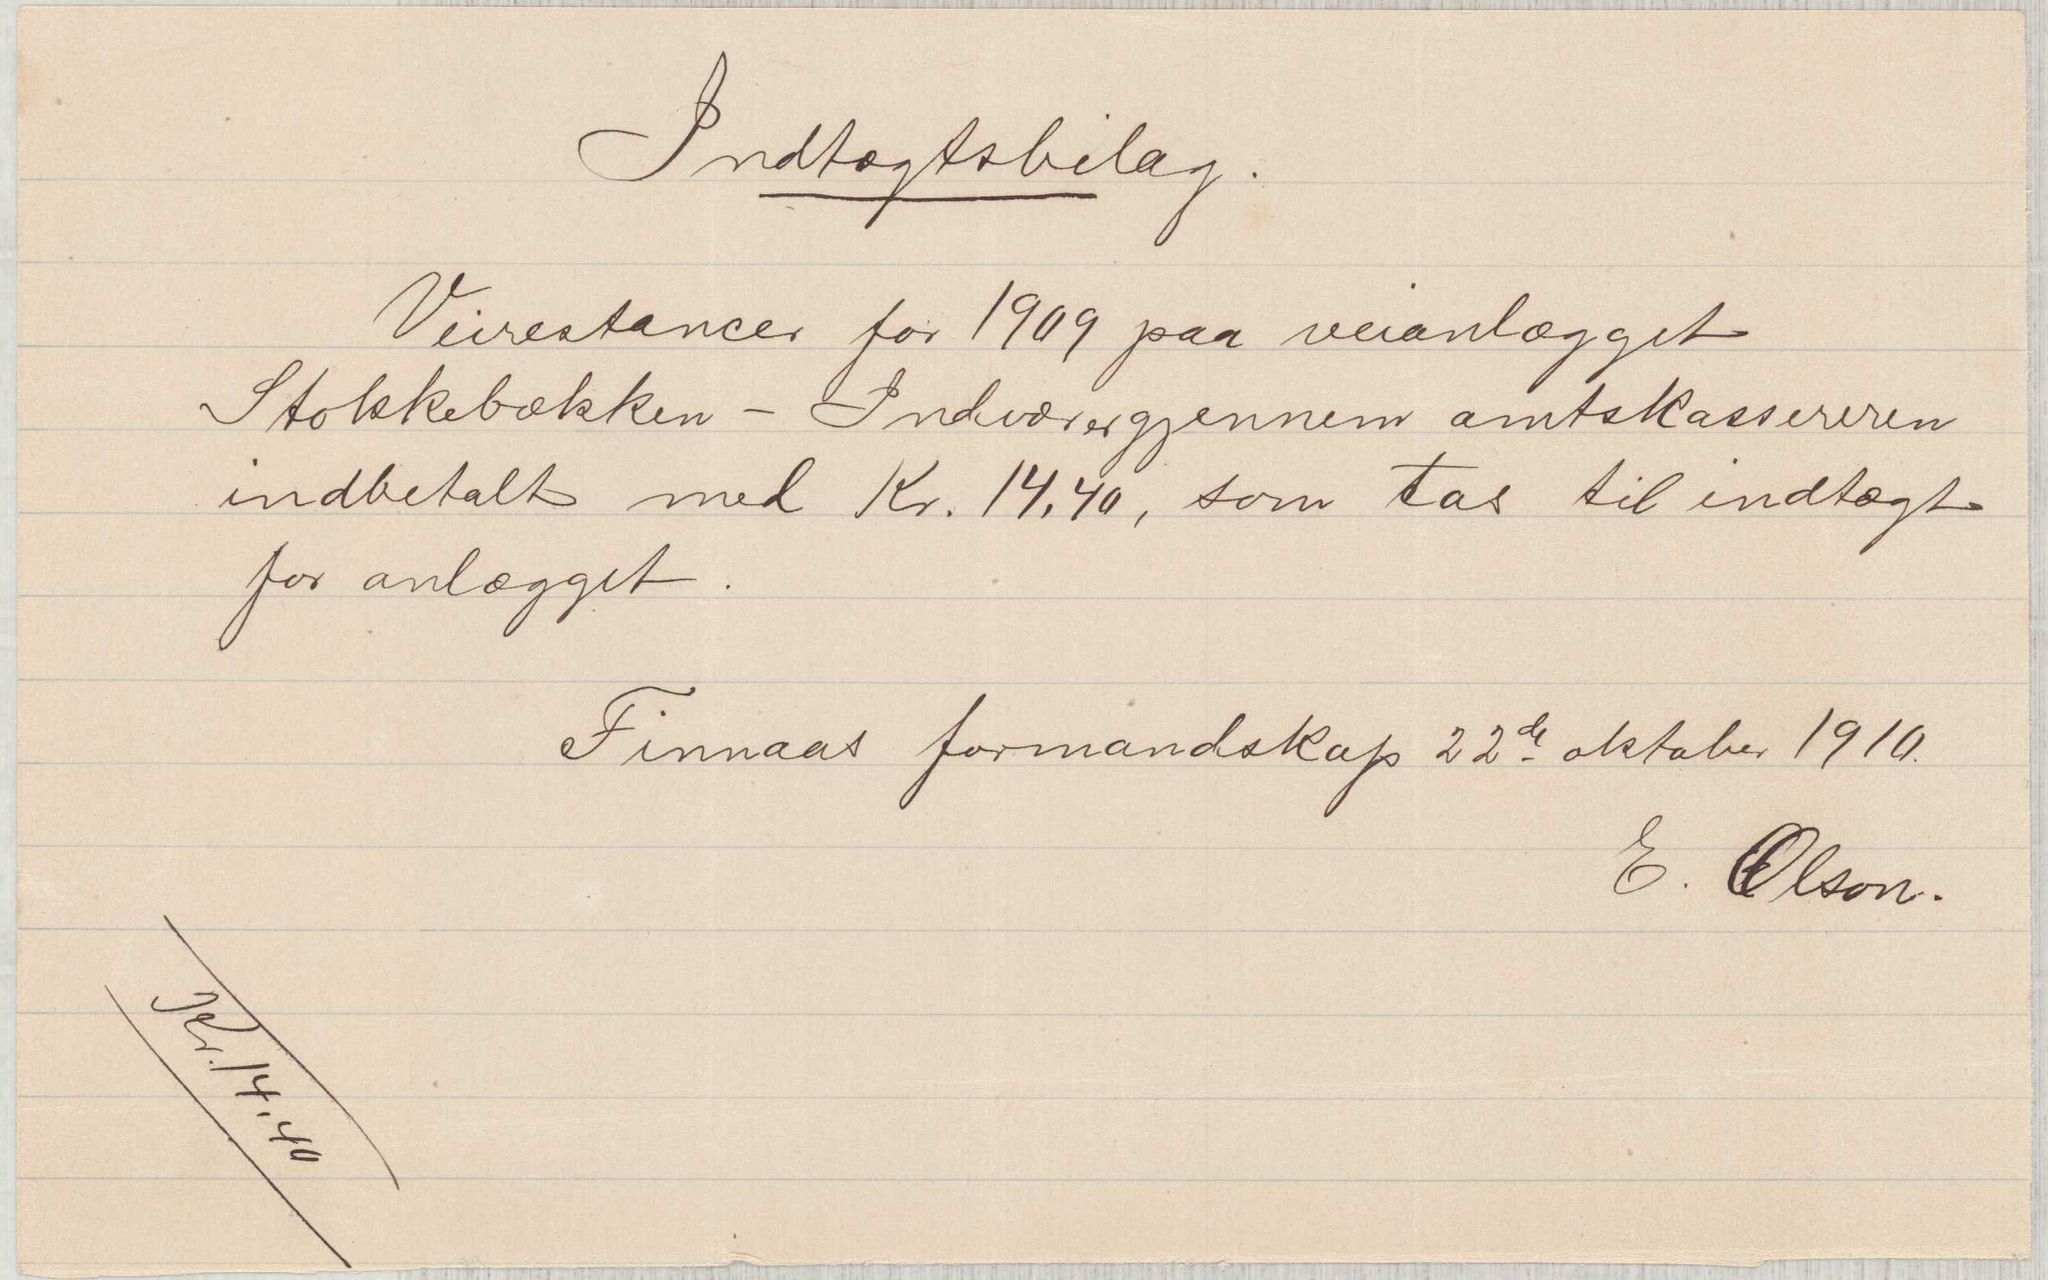 Indtægtsbilag.
Veirestancer for 1909 paa veianlægget
Stokkebækken - Indvær er gjennem amtskassereren
indbetalt med Kr. 14,40, som tas til indtægt
for anlægget.
Finnaas formandskap 22de oktober 1910.
E. Olson.
Kr. 14,40